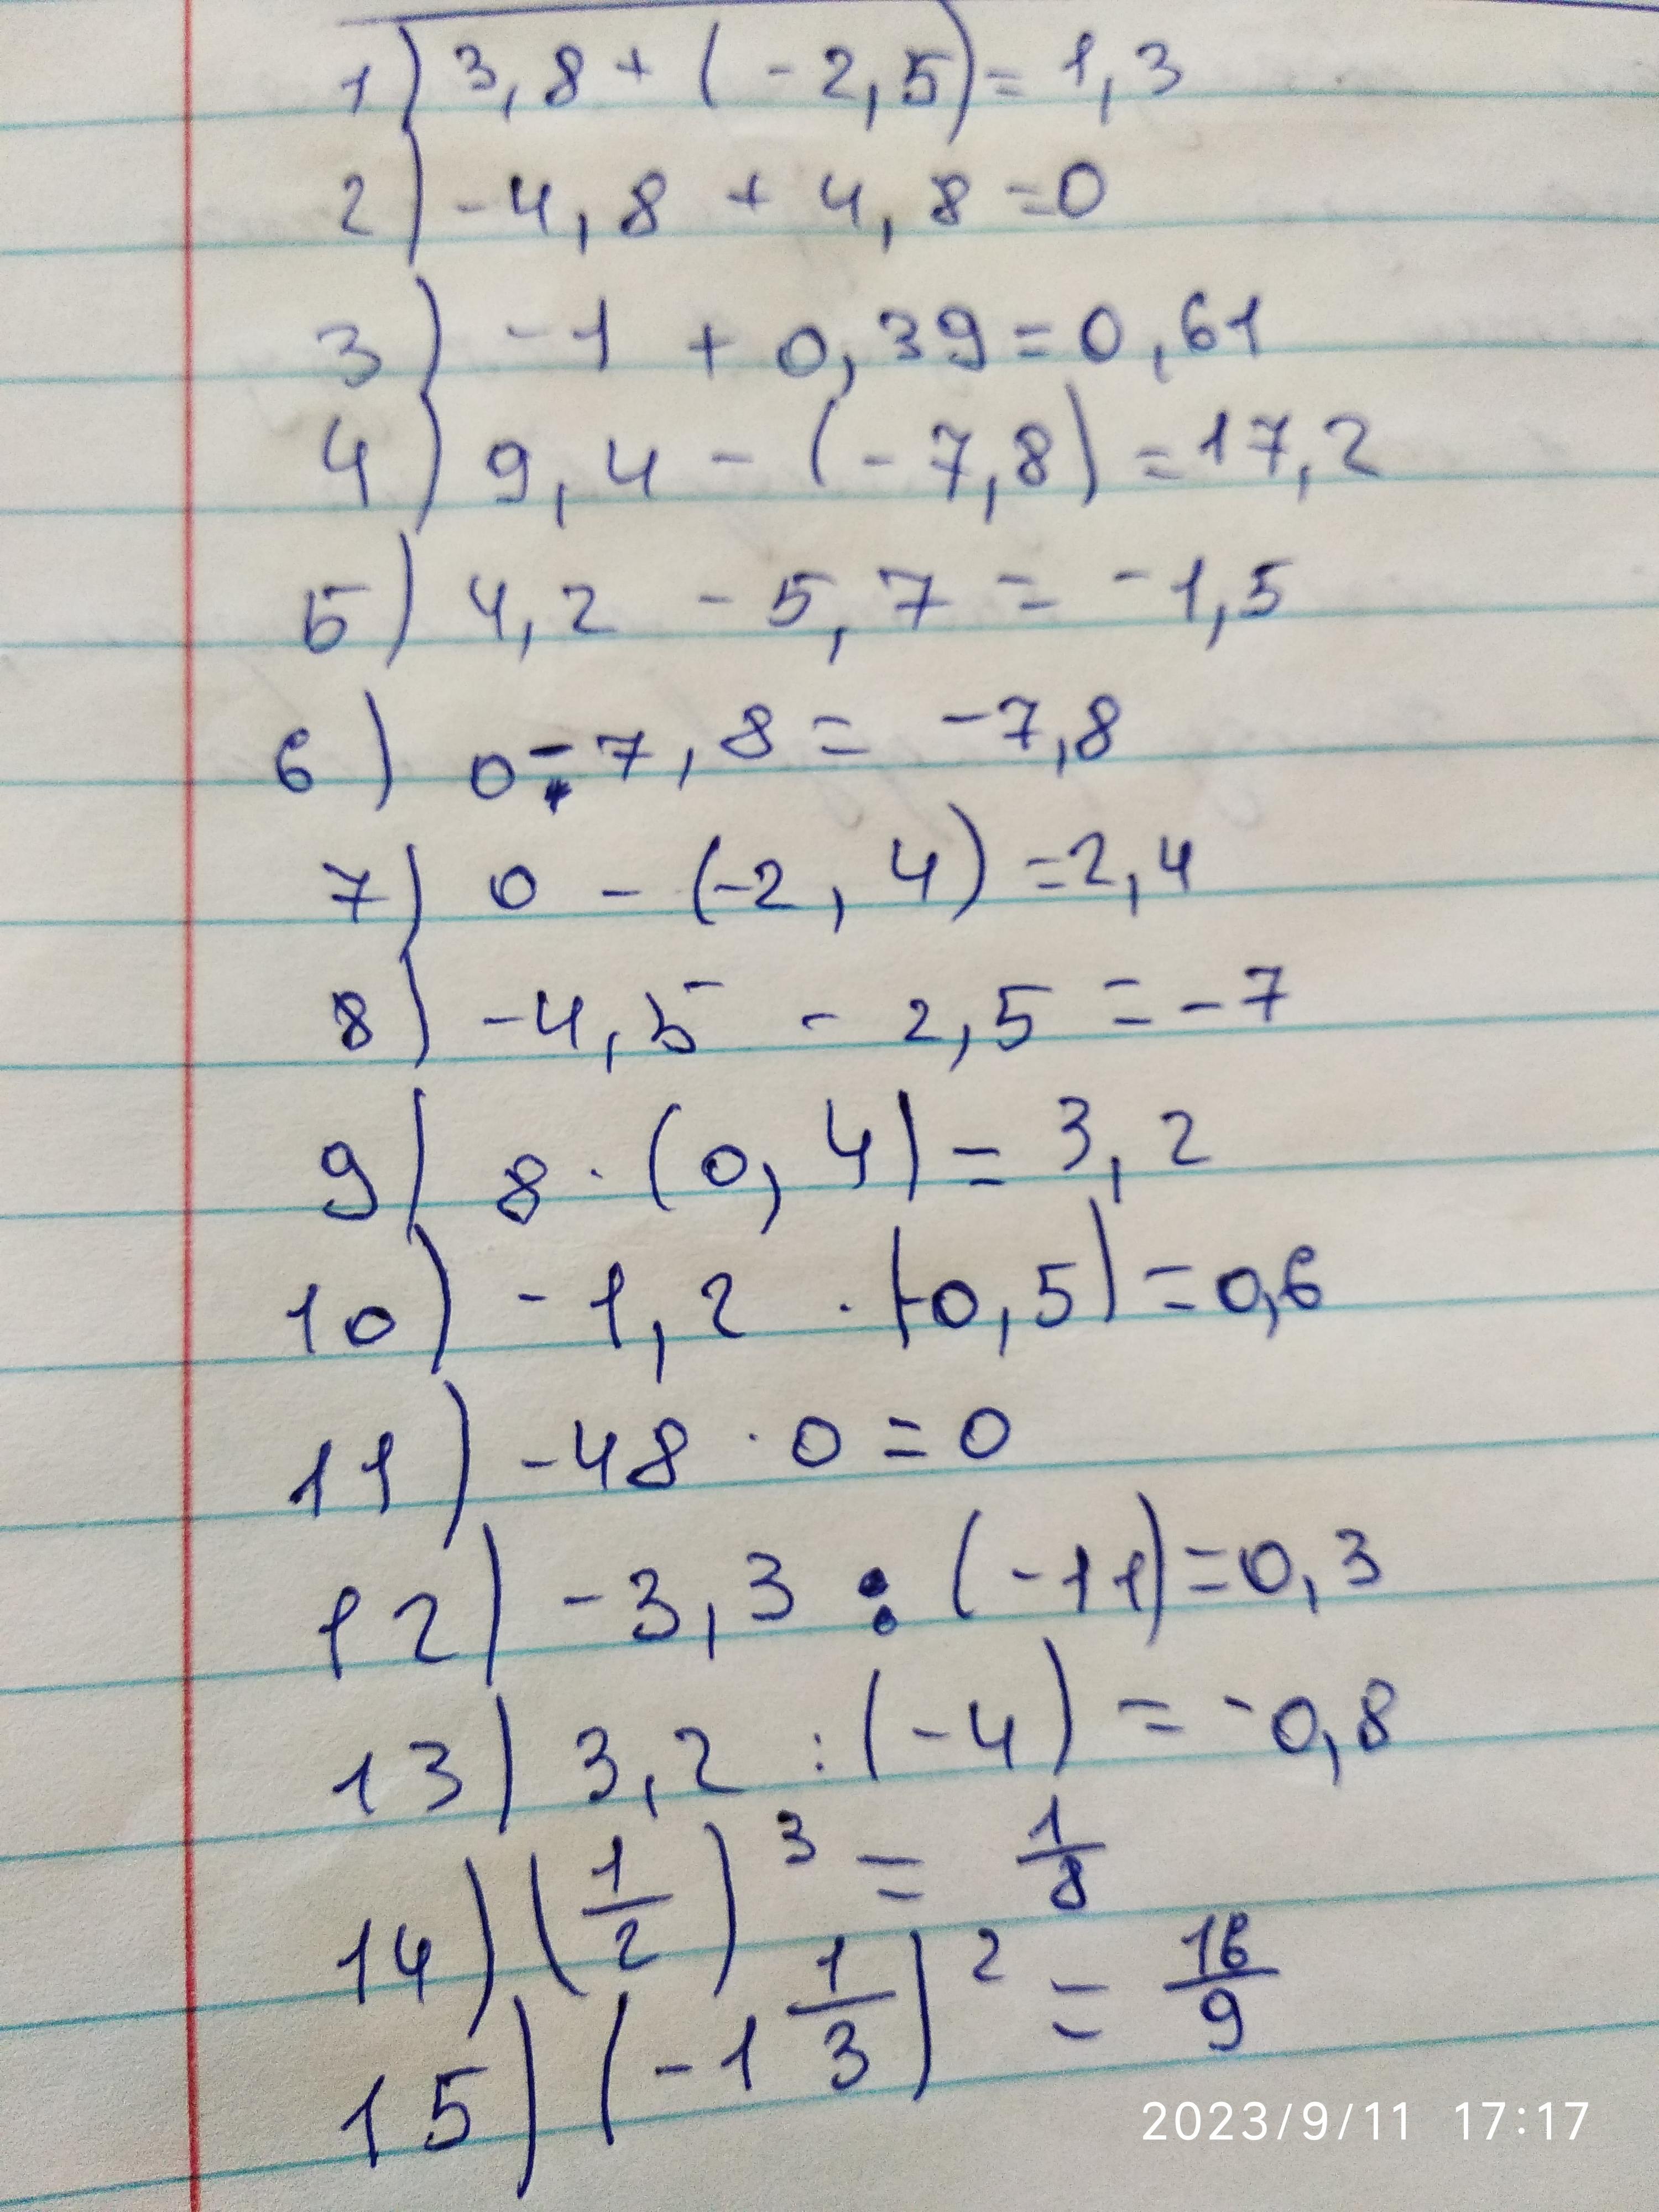 1) 3,8 + (-2,5) = 1,3
2) -4,8 + 4,8 = 0
3) -1 + 0,39 = 0,61
4) 9,4 - (-7,8) = 17,2
5) 4,2 - 5,7 = -1,5
6) 0 - 7,8 = -7,8
7) 0 - (-2,4) = 2,4
8) -4,5 - 2,5 = -7
9) 8 · (0,4) = 3,2
10) -1,2 · (-0,5) = 0,6
11) -48 · 0 = 0
12) -3,3 : (-11) = 0,3
13) 3,2 : (-4) = -0,8
14) (1/2)³ = 1/8
15) (-1 1/3)² = 16/9
2023/9/11 17:17